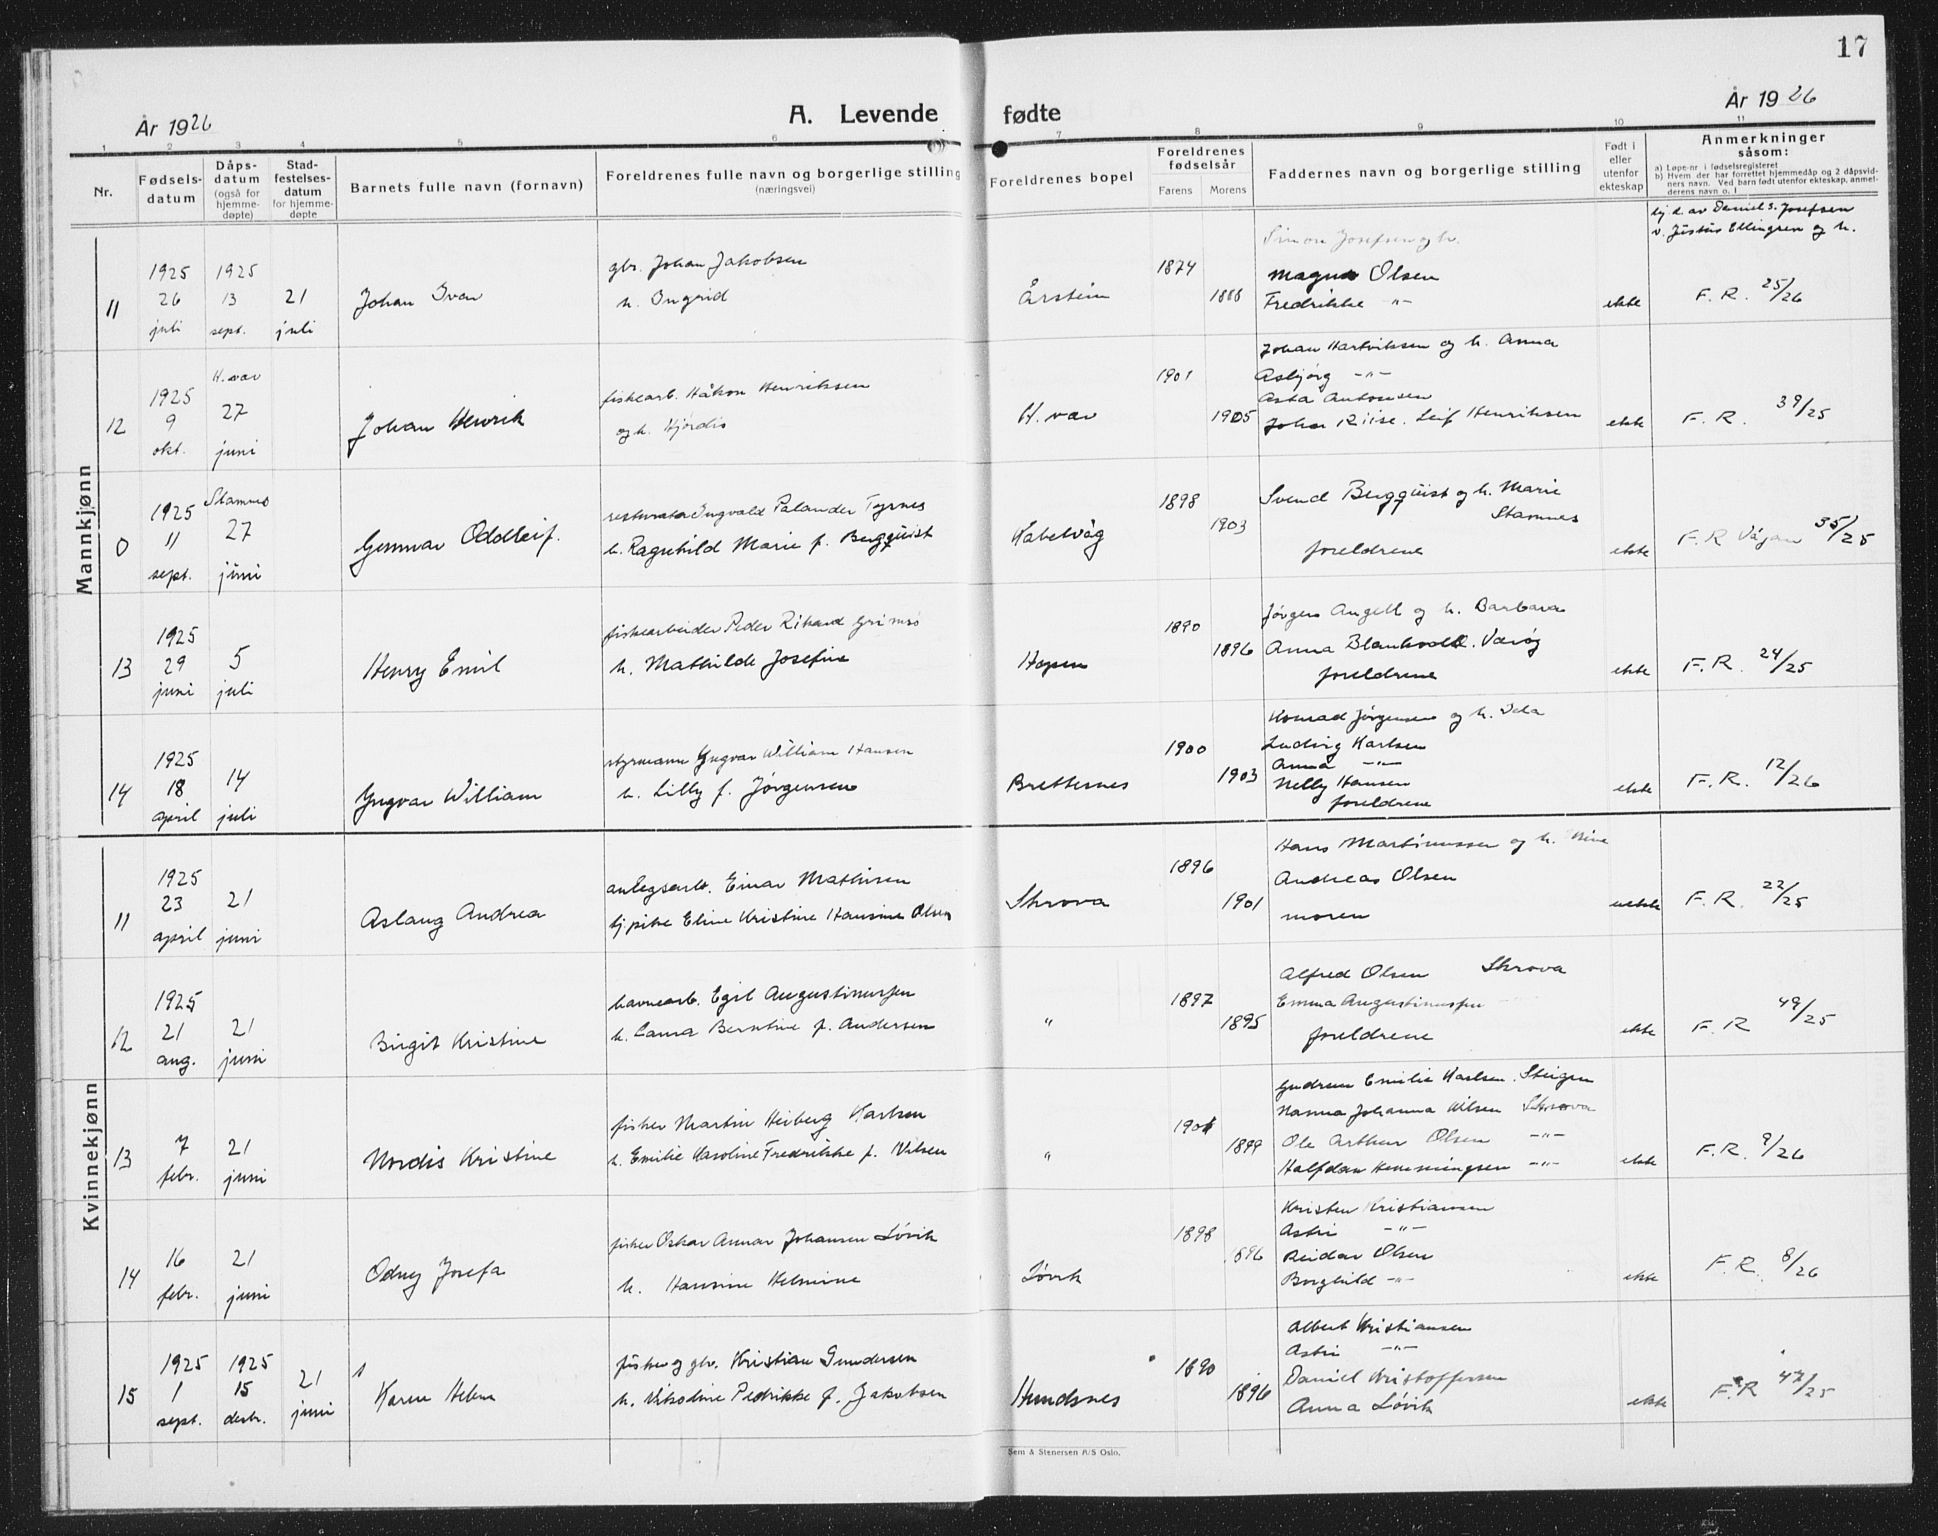 17
År 1926
A. Levende fødte
År 1926
1 2 3 4 5 6 7 8 9 10 11
Nr.
Fødsels-
datum
Dåps-
datum
(også for
hjemme-
døpte)
Stad-
festelses-
datum
for hjemme-
døpte
Barnets fulle navn (fornavn)
Foreldrenes fulle navn og borgerlige stilling
(næringsvei)
Foreldrenes bopel
Foreldrenes
fødselsår
Farens Morens
Faddernes navn og borgerlige stilling
Født i
eller
utenfor
ekteskap
Anmerkninger
såsom:
a) Løpe-nr i fødselsregisteret
b) Hvem der har forrettet hjemmedåp og 2 dåpsvid-
ners navn. Ved barn født utenfor ekteskap, anmel-
derens navn o. l
Mannkjønn
11
1925
26
juli
1925
13
sept.
21
juli
Johan Ivar
gbr. Johan Jakobsen
h. Ingrid
Årstein
1874
1888
Simon Josefsen og h.
Magna Olsen
Fredrikke -"-
ekte
hj. d. av Daniel S. Josefsen
v. Justus Ellingsen og h.
F. R. 25/26
12
1925
9
okt.
H. vær
27
juni
Johan Henrik
fiskearb. Håkon Henriksen
og h. Hjørdis
H. vær
1901
1905
Johan Hartviksen og h. Anna
Asbjørg -"-
Asta Antonsen
Johan Riise. Leif Henriksen
ekte
F. R. 39/25
0
1925
11
sept.
Stamnes
27
juni
Gunnar Oddleif.
Ingvald Palander Tyrnes
h. Ragnhild Marie f. Bergquist
Kabelvåg
1898
1903
Svend Bergquist og h. Marie
Stamnes
foreldrene
ekte
F. R Vågan 35/25
13
1925
29
juni
5
juli
Henry Emil
fiskearbeider Peder Rikard Grimsø
h. Mathilde Josefine
Hopen
1890
1896
Jørgen Angell og h. Barbara
Anna Blankvoll. Værøy
foreldrene
ekte
F. R. 24/25
14
1925
18
april
14
juli
Yngvar William
styrmann Yngvar William Hansen
h. Lilly f. Jørgensen
Brettesnes
1900
1903
Konrad Jørgensen og h. Ida
Ludvig Karlsen
Anna -"-
Nelly Hansen
foreldrene
ekte
F. R. 12/26
Kvinnekjønn
11
1925
23
april
21
juni
Aslaug Andrea
anlegsarb. Einar Mathisen
tj.pike Eline Kristine Hansine Olsen
Skrova
1896
1901
Hans Martinussen og h.
Andreas Olsen
moren
uekte
F. R. 22/25
12
1925
21
aug.
21
juni
Birgit Kristine
havnearb. Egil Augustinussen
h. Laura Berntine f. Andersen
"
1897
1895
Alfred Olsen Skrova
Emma Augustinussen
foreldrene
ekte
F. R 49/25
13
7
febr.
21
juni
Nordis Kristine
fisker Martin Heiberg Karlsen
h. Emilie Karoline Fredrikke f. Nilsen
"
1901
1899
Gudrun Emilie Karlsen. Steigen
Nanna Johanna Nilsen Skrova
Ole Arthur Olsen -"-
Halfdan Hemmingsen -"-
ekte
F. R. 9/26
14
16
febr.
21
juni
Odny Josefa
fisker Oskar Annar Johansen Løvik
h. Hansine Helmine
Løvik
1898
1896
Kristen Kristiansen
Astri -"-
Reidar Olsen
Borghild -"-
ekte
F. R. 8/26
15
1925
1
sept.
1925
15
desbr.
21
juni
Karen Helene
fisker og gbr. Kristian Gundersen
h. Nikoline Pedrikke f. Jakobsen
Hundsnes
1890
1896
Albert Kristiansen
Astri -"-
Daniel Kristoffersen
Anna Løvik
ekte
F. R 47/25
Sem & Stenersen A/S Oslo.